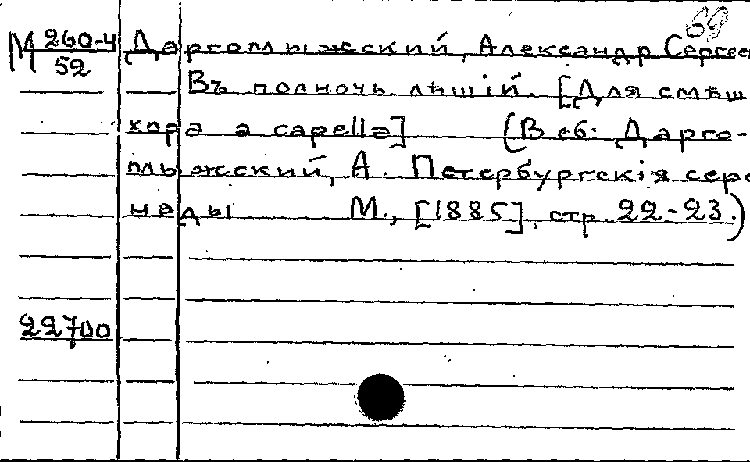 69
М 260-4 Даргомыжский, Александр Сергее
52
Въ полночь лѣшій. [Для смѣш
хора a capella] (В сб: Дарго-
мыжский, А. Петербургскія сере
нады М., [1885], стр. 22-23.)
22700